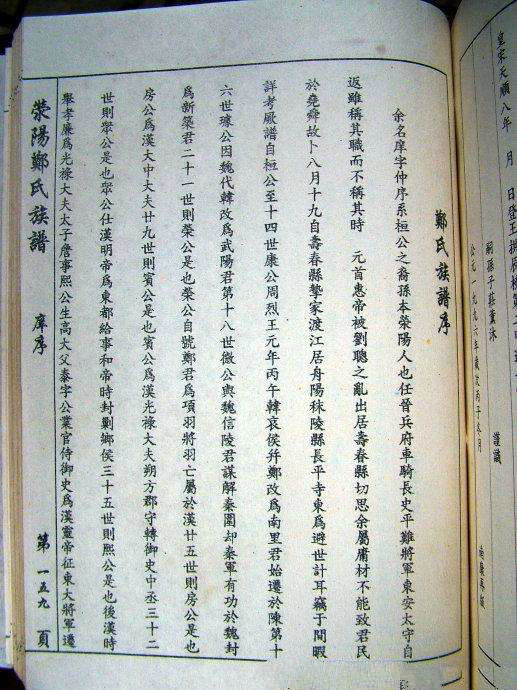 皇宋天順八年　月　日登
嗣孫子莊薰沐
謹識
公元一九九六年歲次丙子冬月
鄭氏族譜序
余名庠字仲序系桓公之裔孫本滎陽人也任晉兵府車騎長史平難將軍東安太守自
返雖稱其職而不稱其時　元首惠帝被劉聰之亂出居壽春縣切思余屬庸材不能致君民
於堯舜故卜八月十九自壽春縣挈家渡江居舟陽秣陵縣長平寺東為避世計耳竊于閒暇
詳考厥譜自桓公至十四世康公周烈王元年丙午韓哀侯幷鄭改為南里君始遷於陳第十
六世瑑公因魏代韓改為武陽君第十八世微公與魏信陵君謀解秦圍却秦軍有功於魏封
為新築君二十一世則榮公是也榮公自號鄭君為項羽將羽亡屬於漢廿五世則房公是也
房公為漢大中大夫廿九世則賓公是也賓公為漢光祿大夫朔方郡守轉御史中丞三十二
世則眾公是也眾公仕漢明帝為東都給事和帝時封剿鄉侯三十五世則熙公是也後漢時
舉孝廉為光祿大夫太子詹事熙公生高大父泰字公業官侍御史為漢靈帝征東大將軍遷
滎陽鄭氏族譜
庠序
第一五九頁